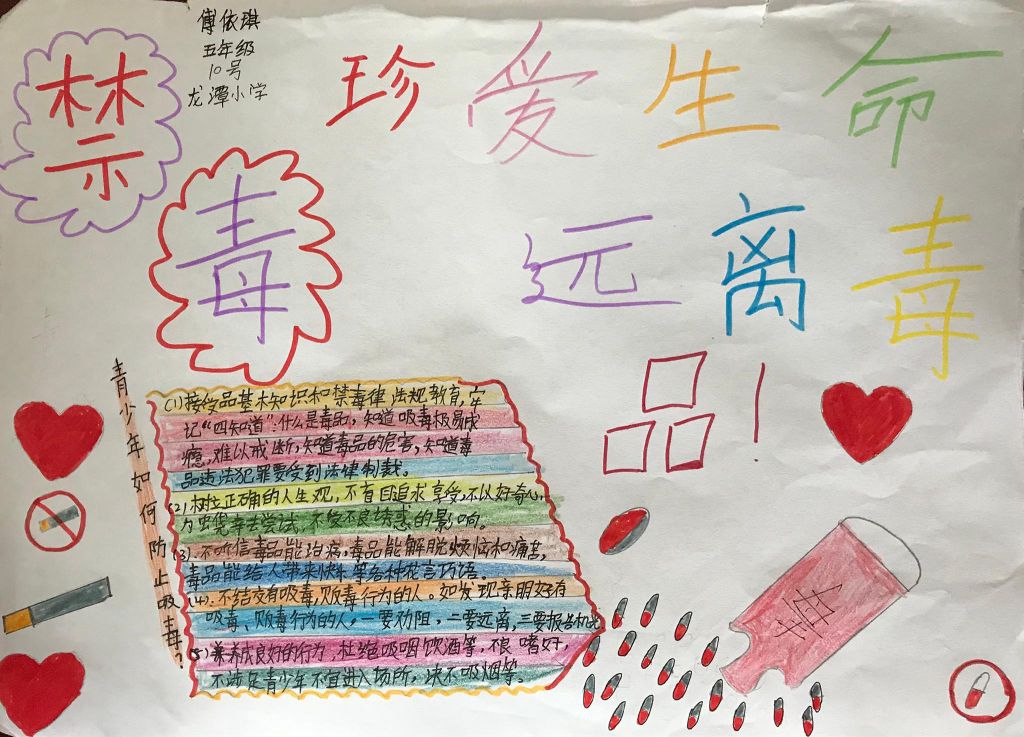 傅依琪
五年级
10号
龙潭小学
禁
毒
珍爱生命
远离毒
品！
青少年如何防止吸毒？
(1)接受品基本知识和禁毒律法规教育，牢
记“四知道”：什么是毒品，知道吸毒极易成
瘾，难以戒断，知道毒品的危害，知道毒
品违法犯罪要受到法律制裁。
(2)树立正确的人生观，不盲目追求享受，不以好奇心
为
去尝试，不受不良诱惑的影响。
(3).不听信毒品能治病，毒品能解脱烦恼和痛苦，
毒品能给人带来快乐等各种花言巧语。
(4).不结交有吸毒，贩毒行为的人。如发现亲朋好有
吸毒、贩毒行为的人，一要劝阻，二要远离，三要报告机关
(5)养成良好的行为，杜绝吸咽饮酒等，不良嗜好，
不涉足青少年不宜进入场所，决不吸烟等。
毒